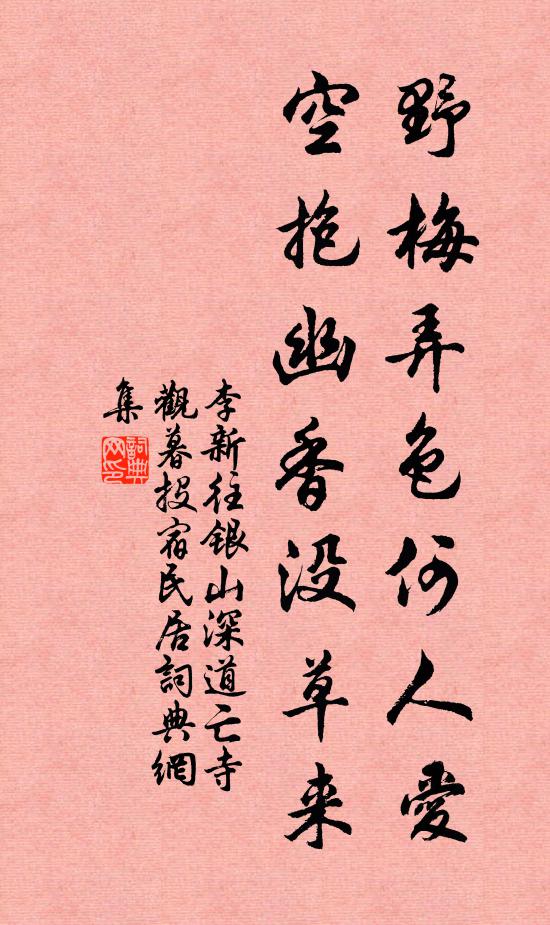 野梅弄色何人愛
空抱幽香没草来
李新往銀山深道亡寺
觀暮投宿民居詞典網
集
詞典网印